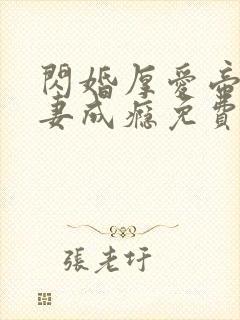 閃婚厚愛帝
妻成癮免費
張老圩